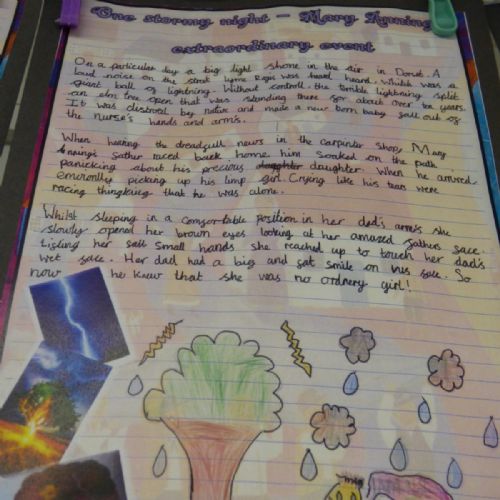 One stormy night - Mary Anning's
extraordinary event
On a particular day a big light shone in the air in Dorset. A
loud noise on the street Lyme Regis was heard. Whilst was a
giant ball of lightning. Without controll the terible lightning split
an elm tree open that was standing there for about over ten years.
It was distroted by nature and made a new born baby fall out of
the nurse's hands and arms.
When hearing the dreadfull news in the carpinter shop, Mary
Anning's father raced back home him soaked on the path
panicking about his precious daughter. When he arrived
emeromtly picking up his limp girl. Crying like his tears were
racing thingking that he was alone.
Whilst sleeping in a comfortable position in her dad's arms she
slowly opened her brown eyes looking at her amused fathers face.
Lifting her soft small hands she reached up to touch her dad's
wet face. Her dad had a big and fat smile on his face. So
now he knew that she was no ordnery girl!